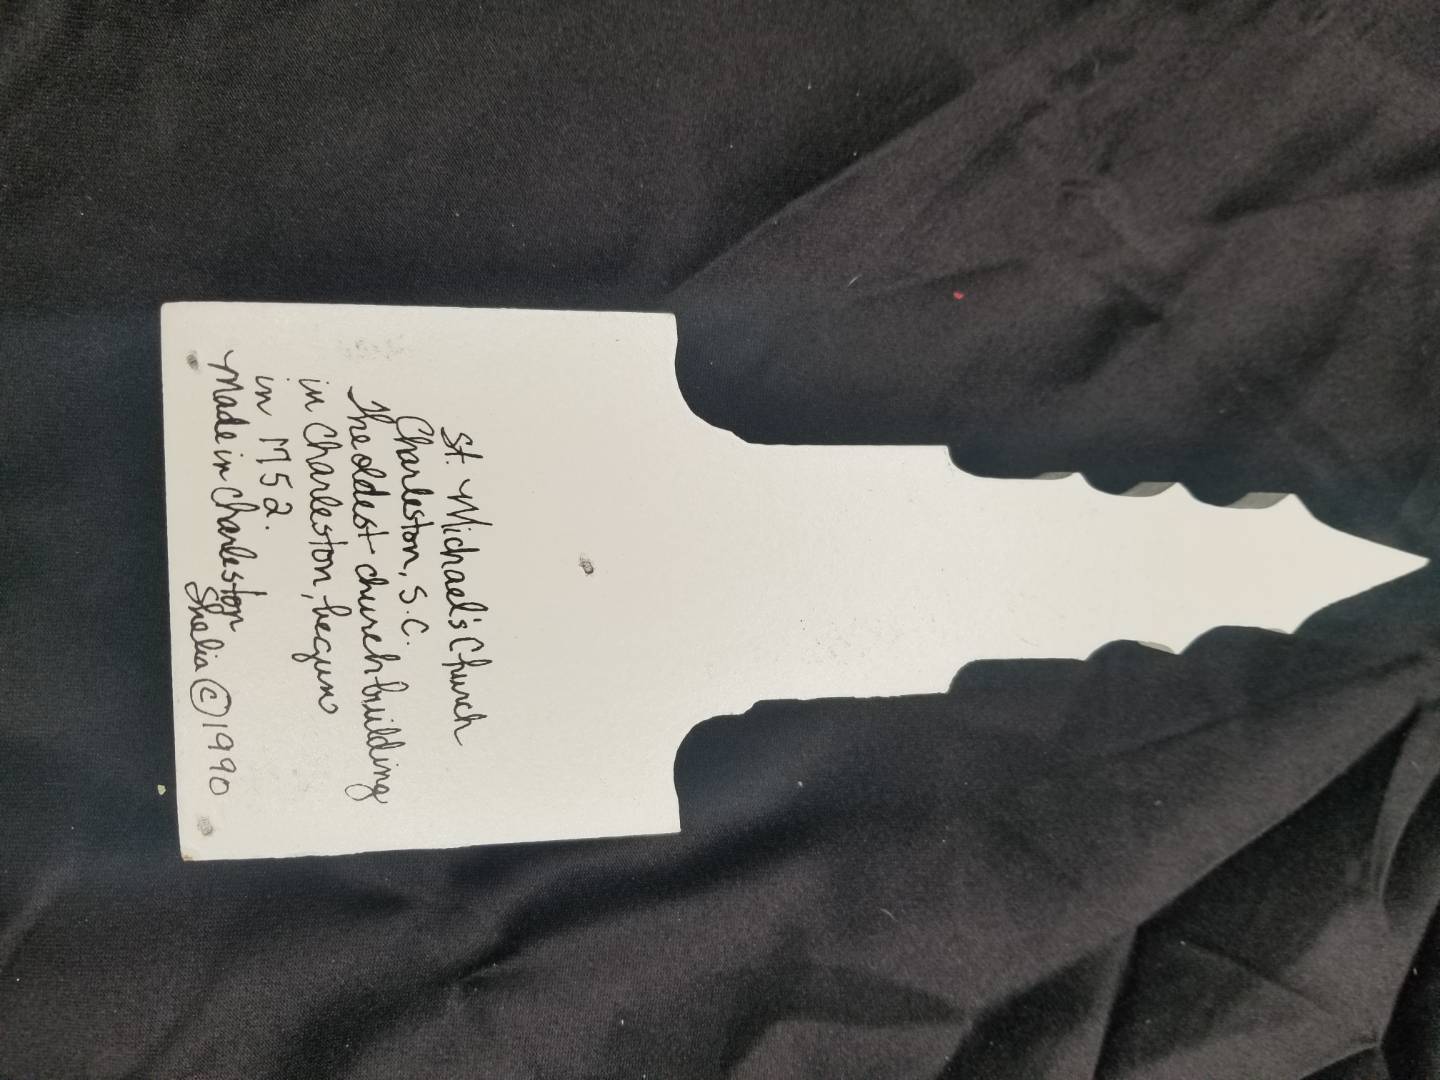 St. Michael's Church
Charleston, S.C.
The oldest church building
in Charleston, begun
in 1752.
Made in Charleston
Shelia © 1990